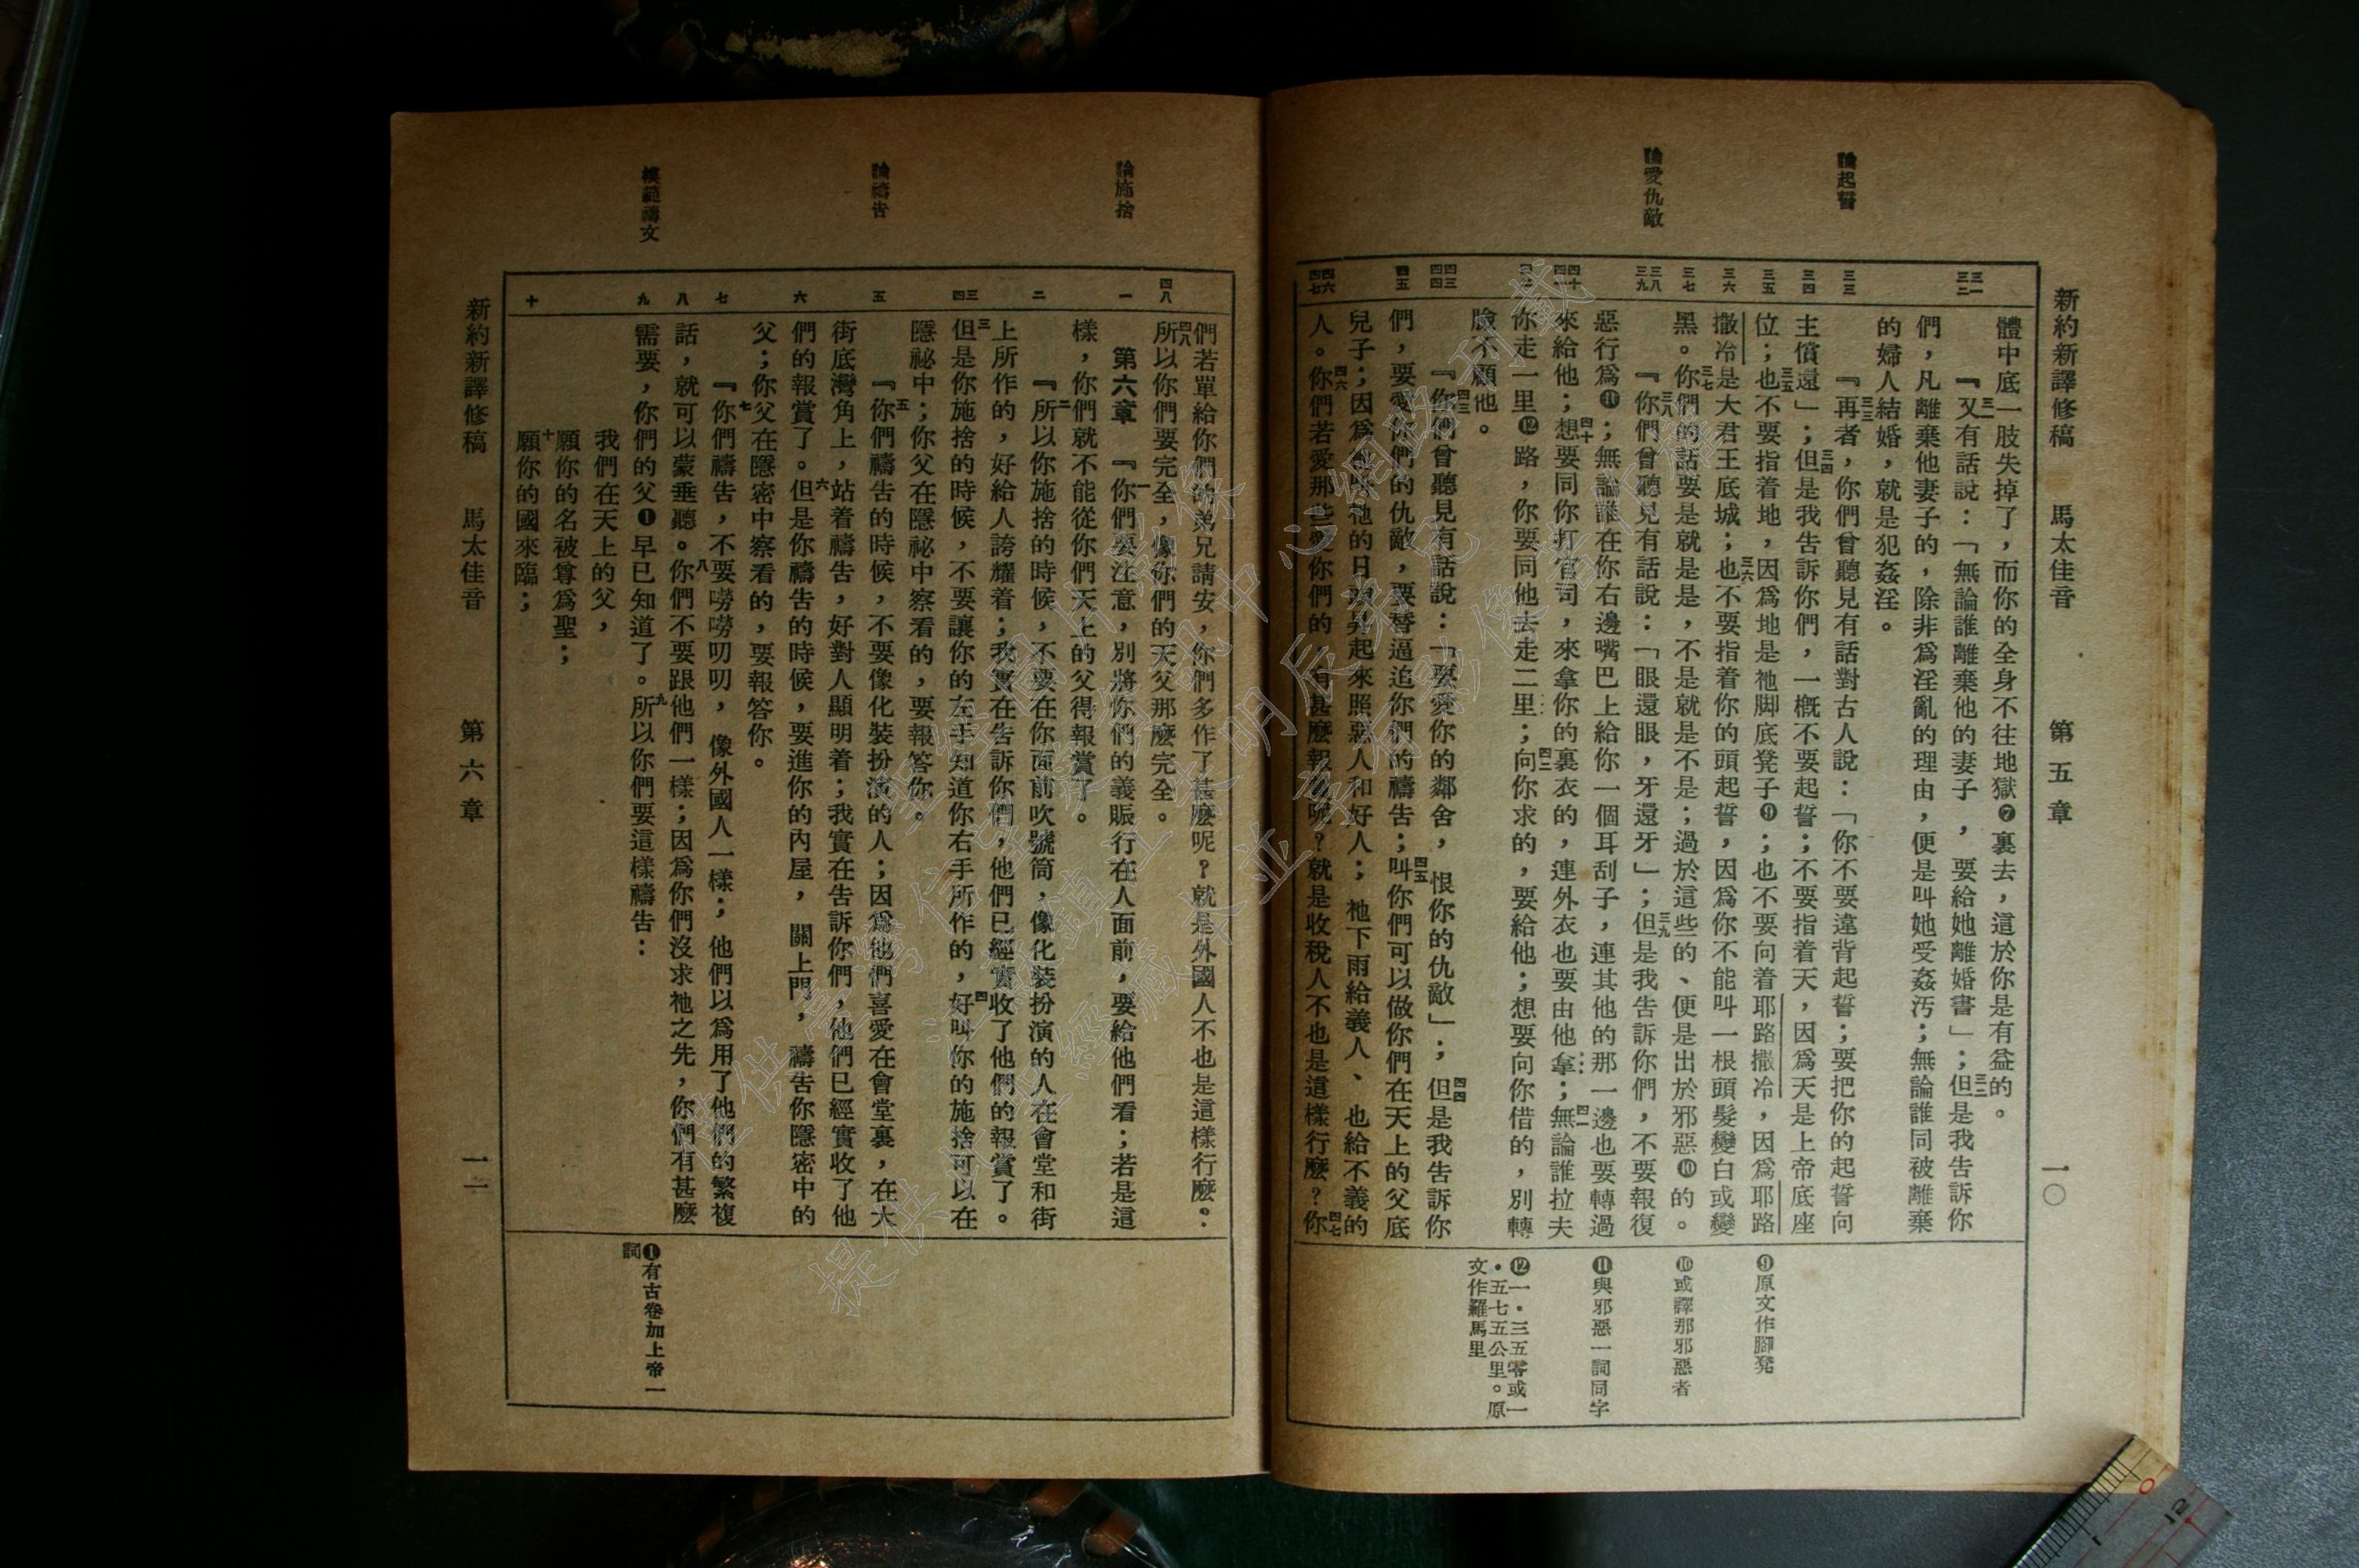 新約新譯修稿　馬太佳音　第五章　一〇
論起誓
論愛仇敵
三一
三二
三三
三四
三五
三六
三七
三八
三九
四十
四一
四二
四三
四四
四五
四六
四七
體中底一肢失掉了，而你的全身不往地獄❼裏去，這於你是有益的。
『三一又有話說：「無論誰離棄他的妻子，要給她離婚書」；三二但是我告訴你
們，凡離棄他妻子的，除非爲淫亂的理由，便是叫她受姦污；無論誰同被離棄
的婦人結婚，就是犯姦淫。
『三三再者，你們曾聽見有話對古人說：「你不要違背起誓；要把你的起誓向
主償還」；三四但是我告訴你們，一概不要起誓；不要指着天，因爲天是上帝底座
位；三五也不要指着地，因爲地是祂脚底凳子❾；也不要向着耶路撒冷，因爲耶路
撒冷是大君王底城；三六也不要指着你的頭起誓，因爲你不能叫一根頭髮變白或變
黑。三七你們的話要是就是是，不是就是不是；過於這些的、便是出於邪惡❿的。
『三八你們曾聽見有話說：「眼還眼，牙還牙」；三九但是我告訴你們，不要報復
惡行爲⓫；無論誰在你右邊嘴巴上給你一個耳刮子，連其他的那一邊也要轉過
來給他；四十想要同你打官司，來拿你的裏衣的，連外衣也要由他拿；四一無論誰拉夫
你走一里⓬路，你要同他去走二里；四二向你求的，要給他；想要向你借的，別轉
臉不顧他。
『四三你們曾聽見有話說：「要愛你的鄰舍，恨你的仇敵」；四四但是我告訴你
們，要愛你們的仇敵，要替逼迫你們的禱告；四五叫你們可以做你們在天上的父底
兒子；因爲祂叫祂的日頭昇起來照惡人和好人；祂下雨給義人、也給不義的
人。四六你們若愛那些愛你們的，有甚麼報賞呢？就是收稅人不也是這樣行麼？四七你
❾原文作腳凳
❿或譯那邪惡者
⓫與邪惡一詞同字
⓬一・三五零或一
・五七五公里。原
文作羅馬里
論施捨
論禱告
模範禱文
四八
一
二
三
四
五
六
七
八
九
十
們若單給你們的弟兄請安，你們多作了甚麼呢？就是外國人不也是這樣行麼。：
四八所以你們要完全，像你們的天父那麼完全。
第六章　『一你們要注意，別將你們的義賑行在人面前，要給他們看；若是這
樣，你們就不能從你們天上的父得報賞了。
『二所以你施捨的時候，不要在你面前吹號筒，像化裝扮演的人在會堂和街
上所作的，好給人誇耀着；我實在告訴你們，他們已經實收了他們的報賞了。
三但是你施捨的時候，不要讓你的左手知道你右手所作的，四好叫你的施捨可以在
隱祕中；你父在隱祕中察看的，要報答你。
『五你們禱告的時候，不要像化裝扮演的人；因爲他們喜愛在會堂裏，在大
街底灣角上，站着禱告，好對人顯明着；我實在告訴你們，他們已經實收了他
們的報賞了。六但是你禱告的時候，要進你的內屋，關上門，禱告你隱密中的
父；你父在隱密中察看的，要報答你。
『七你們禱告，不要嘮嘮叨叨，像外國人一樣；他們以爲用了他們的繁複
話，就可以蒙垂聽。八你們不要跟他們一樣；因爲你們沒求祂之先，你們有甚麼
需要，你們的父❶早已知道了。九所以你們要這樣禱告：
我們在天上的父，
願你的名被尊爲聖；
十願你的國來臨；
❶有古卷加上帝一
詞
新約新譯修稿　馬太佳音　第六章　一一